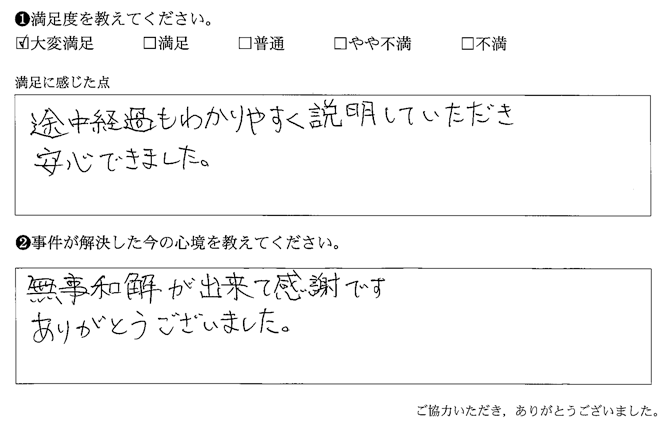 ❶満足度を教えてください。
☑大変満足 □満足 □普通 □やや不満 □不満
満足に感じた点
途中経過もわかりやすく説明していただき
安心できました。
❷事件が解決した今の心境を教えてください。
無事和解が出来て感謝です
ありがとうございました。
ご協力いただき，ありがとうございました。